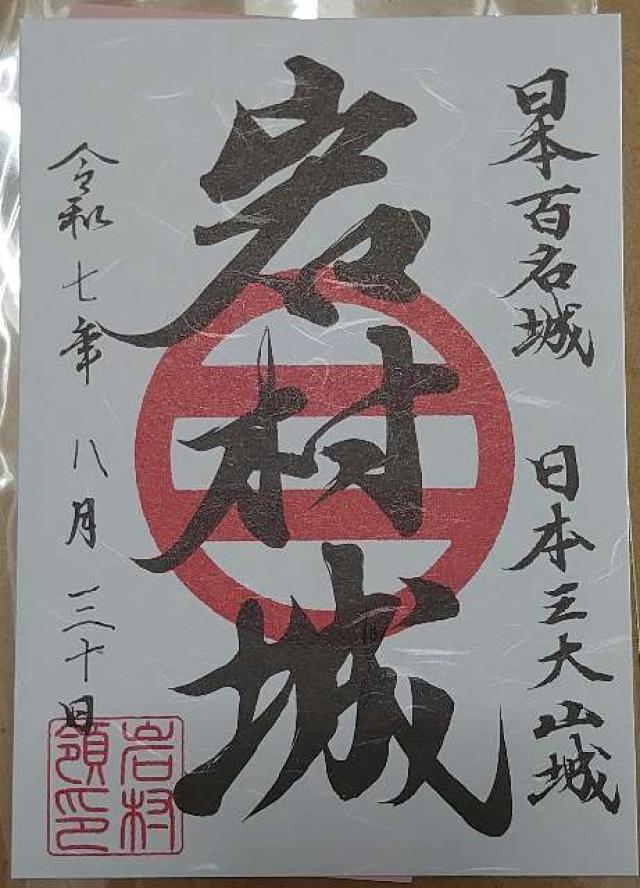 日本百名城
日本三大山城
岩村城
令和七年 八月 三十日
岩村
領印